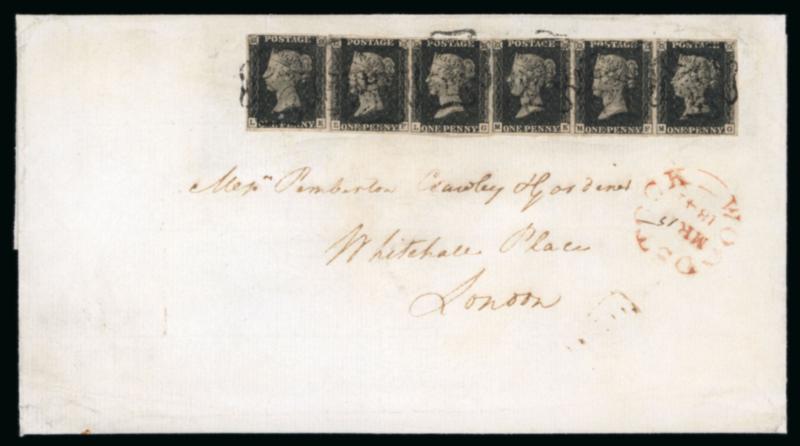 POSTAGE POSTAGE POSTAGE POSTAGE POSTAGE POSTAGE
L E ONE PENNY E ONE PENNY F L ONE PENNY G M ONE PENNY E M ONE PENNY F M ONE PENNY G
Messrs Pemberton Crawley & Gardiner
Whitehall Place
London
WOODSTOCK
MR 15
1841